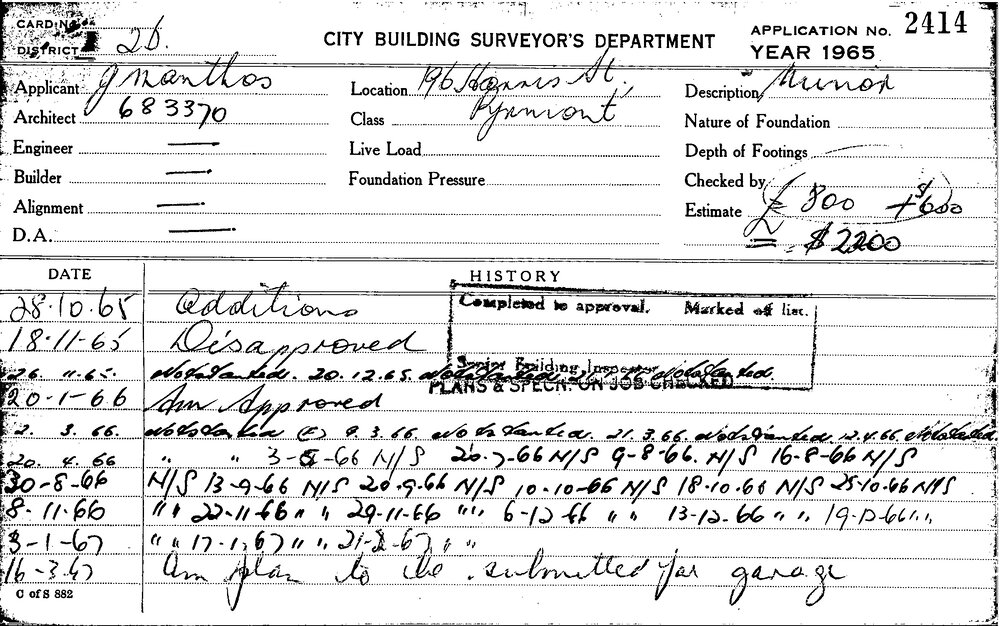 CARDING
DISTRICT 2b.
CITY BUILDING SURVEYOR'S DEPARTMENT
APPLICATION No. 2414
YEAR 1965
Applicant J Manthos
Location 196 Harris St,
Description Minor
Architect 683370
Class Pyrmont
Nature of Foundation
Engineer —
Live Load
Depth of Footings
Builder —
Foundation Pressure
Checked by
Alignment —
Estimate £ 800 + $600
D.A. —
= $2200
DATE HISTORY
28.10.65 Additions
Completed to approval. Marked off list.
18.11.65 Disapproved
Senior Building Inspector
26. 11.65. Not Started. 20.12.65. Not Started
PLANS & SPECN. ON JOB CHECKED
20-1-66 Am Approved
2. 3. 66. Not Started (E) 9.3.66. Not Started. 21.3.66. Not Started. 12.4.66. Not Started.
20. 4. 66 " " 3-5-66 N/S 20.7-66 N/S 9-8-66. N/S 16-8-66 N/S
30-8-66 N/S 13-9-66 N/S 20.9.66 N/S 10-10-66 N/S 18.10.66 N/S 25-10.66 N/S
8.11.66 " " 22-11-66 " " 29-11-66 " " 6-12-66 " " 13-12.66 " " 19-12-66 " "
3-1-67 " " 17-1.67 " " 21-2-67 " "
16-3.67 Am plan to be submitted for garage
C of S 882